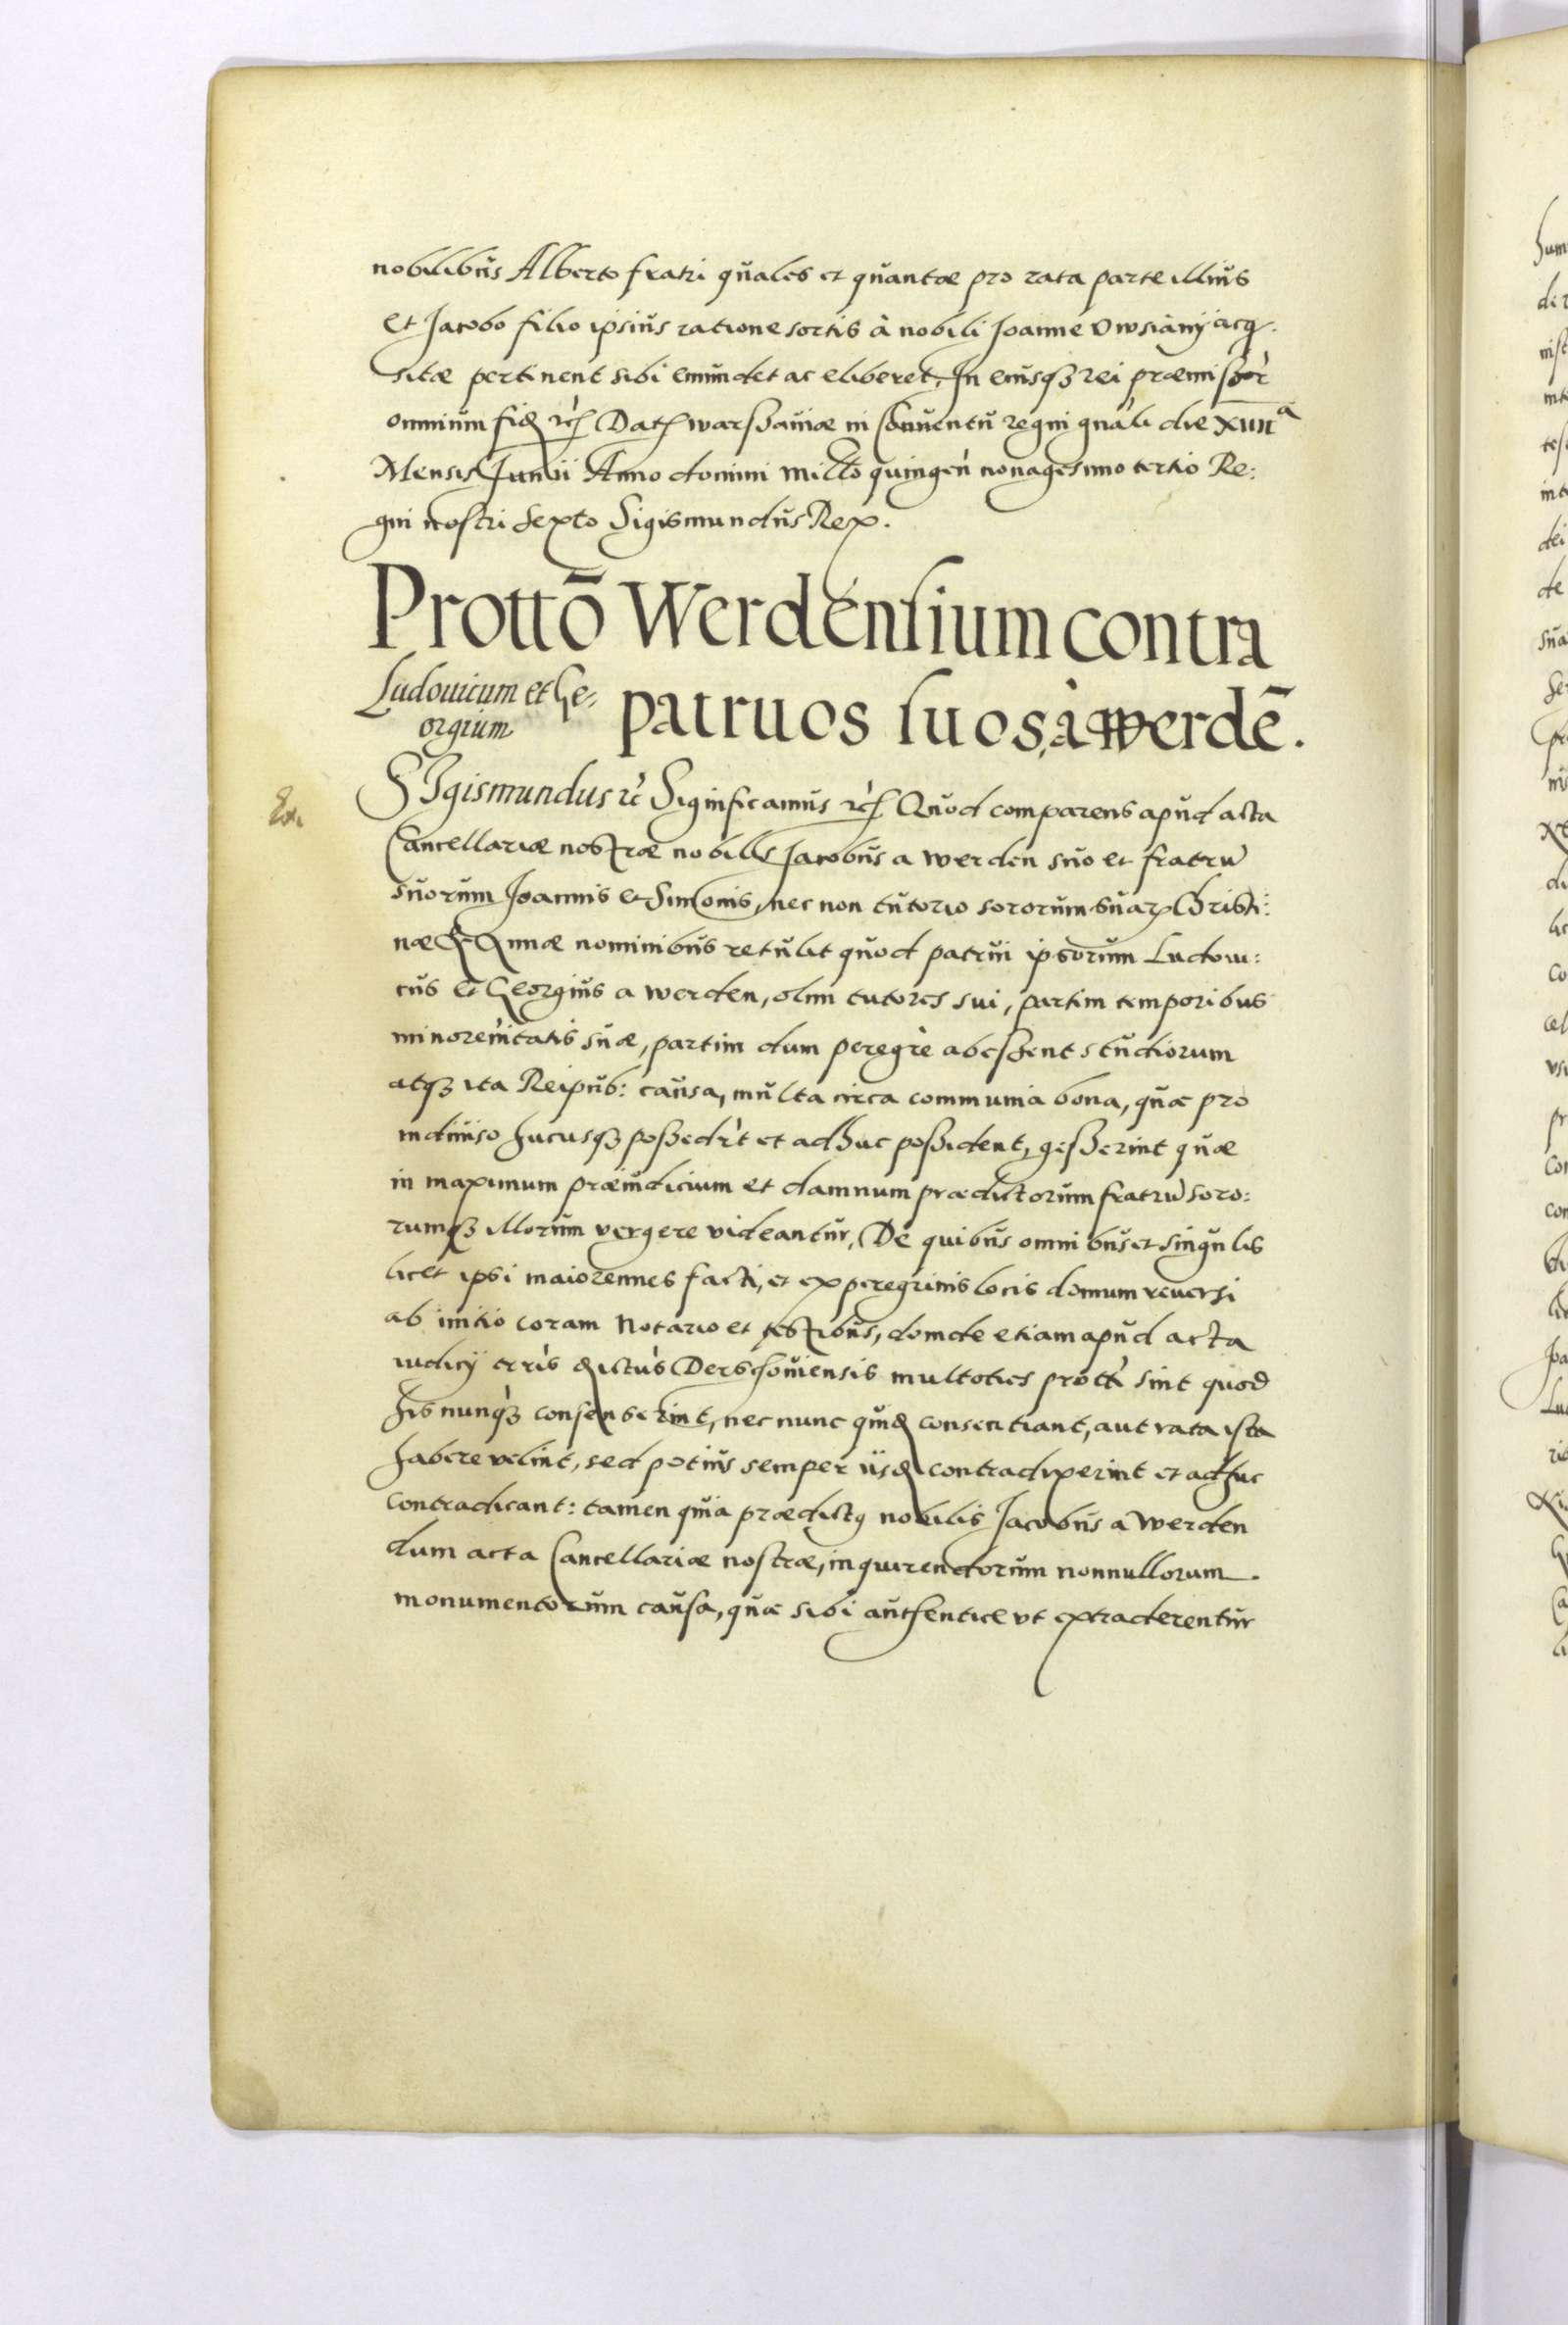 nobilibus Alberto fratri quales et quantæ pro rata parte illius
et Jacobo filio ipsius ratione sortis à nobili Joanne Owsiany acq:
sitæ pertinent sibi emundet ac eliberet. In cuiusq3 rei præmissor
omnium fid etc Dat Warssaviæ in conventu regni gnali die XIIII a
Mensis Junii Anno domini millo quingen nonagesimo tertio Re:
gni nostri sexto Sigismundus Rex.
Prottõ Werdensium contra
Ludovicum et Ge:
orgium
patruos suos, à Werdē.
Ex.
Sigismundus etc Significamus etc Quod comparens apud acta
Cancellariæ nostræ nobilis Jacobus a Werden suo et fratrū
suorum Joannis et Simonis, nec non tutorio sororum suar Christi:
næ et Annæ nominibus retulit quod patrui ipsorum Ludovi:
cus et Georgius a Werden, olim tutores sui, partim temporibus
minorennitatis suæ, partim dum peregrè abessent studiorum
atq3 ita Reipub: causa, multa circa communia bona, quæ pro
indiviso hucusq3 possedrt et adhuc possident, gesserint quæ
in maximum præiudicium et damnum prædictorum fratrū soro:
rumq3 illorum vergere videantur, De quibus omnibus et singulis
licet ipsi maiorennes facti, et ex peregrinis locis domum reversi
ab initio coram Notario et testibus, deinde etiam apud acta
iudicij trris districtus Derschoviensis multoties protti sint quod
his nunq3 consenserint, nec nunc quid consentiant, aut rata ista
habere velint, sed potius semper iisd contradixerint et adhuc
contradicant: tamen quia prædictus nobilis Jacobus a Werden
dum acta Cancellariæ nostræ, inquirendorum nonnullorum
monumentorum causa, quæ sibi authentice ut extraderentur